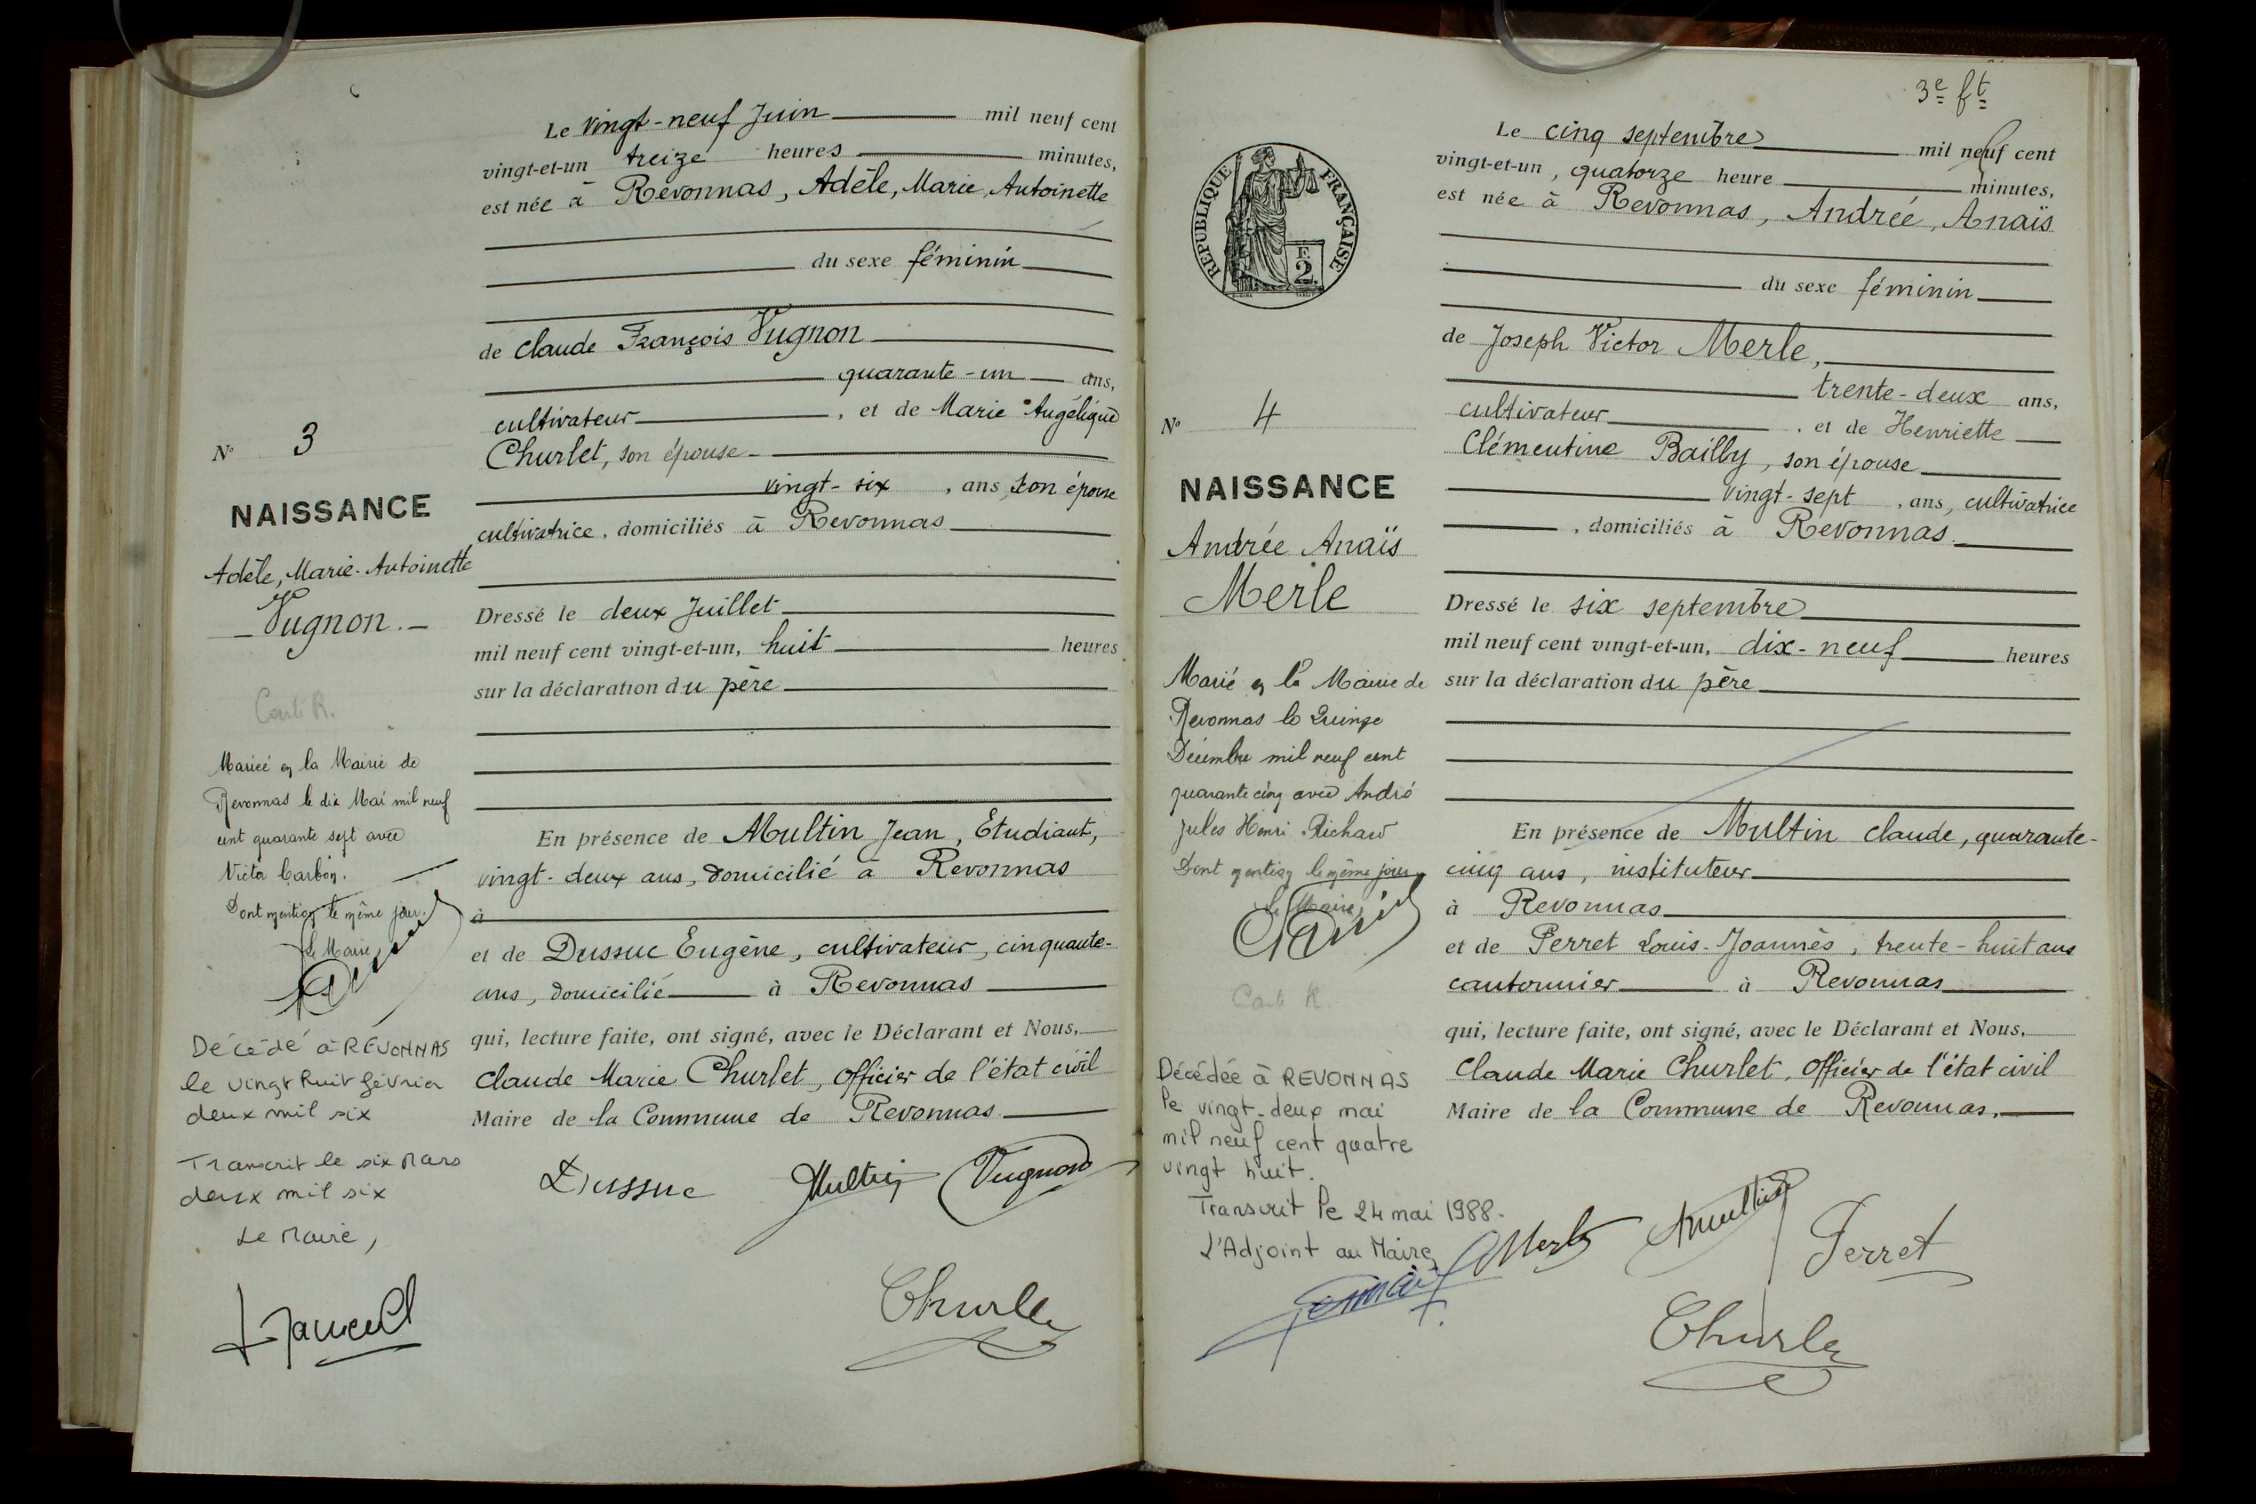 Le vingt-neuf Juin mil neuf cent
vingt-et-un treize heures minutes,
est née à Revonnas, Adèle, Marie, Antoinette
du sexe féminin
de Claude François Vugnon
quarante-un ans,
cultivateur, et de Marie Angélique
Churlet, son épouse
vingt-six, ans, son épouse
cultivatrice, domiciliés à Revonnas
Dressé le deux Juillet
mil neuf cent vingt-et-un, huit heures
sur la déclaration du père
En présence de Multin Jean, Etudiant,
vingt-deux ans, domicilié à Revonnas
à
et de Dussuc Eugène, cultivateur, cinquante-
ans, domicilié à Revonnas
qui, lecture faite, ont signé, avec le Déclarant et Nous,
Claude Marie Churlet, officier de l'état civil
Maire de la Commune de Revonnas
Dussuc Multin Vugnon
Churlet
N° 3
NAISSANCE
Adèle, Marie-Antoinette
Vugnon
Carte R.
Mariée en la Mairie de
Revonnas le dix Mai mil neuf
cent quarante sept avec
Victor Carbon.
Dont mention le même jour.
Le Maire,
Décédé à REVONNAS
le vingt huit février
deux mil six
Transcrit le six Mars
deux mil six
Le Maire,
3e ft
Le cinq septembre mil neuf cent
vingt-et-un, quatorze heure minutes,
est née à Revonnas, Andrée, Anaïs
du sexe féminin
de Joseph Victor Merle,
trente-deux ans,
cultivateur, et de Henriette
Clémentine Bailly, son épouse
vingt-sept, ans, cultivatrice
, domiciliés à Revonnas
Dressé le six septembre
mil neuf cent vingt-et-un, dix-neuf heures
sur la déclaration du père
En présence de Multin Claude, quarante-
cinq ans, instituteur
à Revonnas
et de Perret Louis-Joannès, trente-huit ans
cantonnier à Revonnas
qui, lecture faite, ont signé, avec le Déclarant et Nous,
Claude Marie Churlet, officier de l'état civil
Maire de la Commune de Revonnas,
Merle Multin Perret
Churlet
RÉPUBLIQUE FRANÇAISE
F.
2
N° 4
NAISSANCE
Andrée Anaïs
Merle
Marié en la Mairie de
Revonnas le Quinze
Décembre mil neuf cent
quarante cinq avec André
Jules Henri Richard
Dont mention le même jour
Le Maire,
Carte R.
Décédée à REVONNAS
le vingt-deux mai
mil neuf cent quatre
vingt huit.
Transcrit le 24 mai 1988.
L'Adjoint au Maire